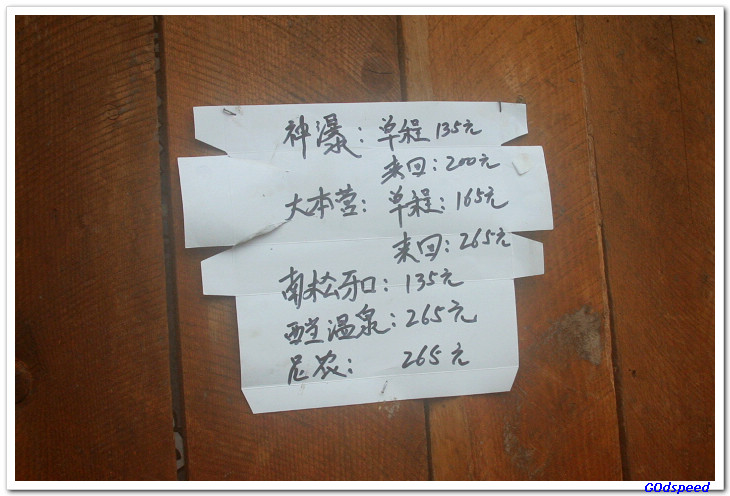 神瀑：单程135元
来回：200元
大本营：单程：165元
来回：265元
南松牙口：135元
西堂温泉：265元
尼农：265元
GOdspeed